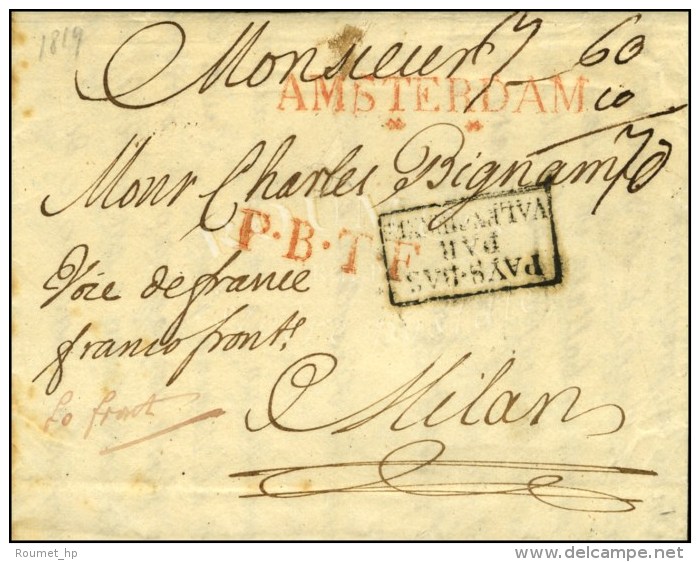 1819
Monsieur 7 60
AMSTERDAM 10
Monr Charles Bignam 70
P.B.T.F.
PAYS-BAS
PAR
VALENCIENNES
Voie de france
franco front.e
Milan
Roumet_hp
www.delcampe.net